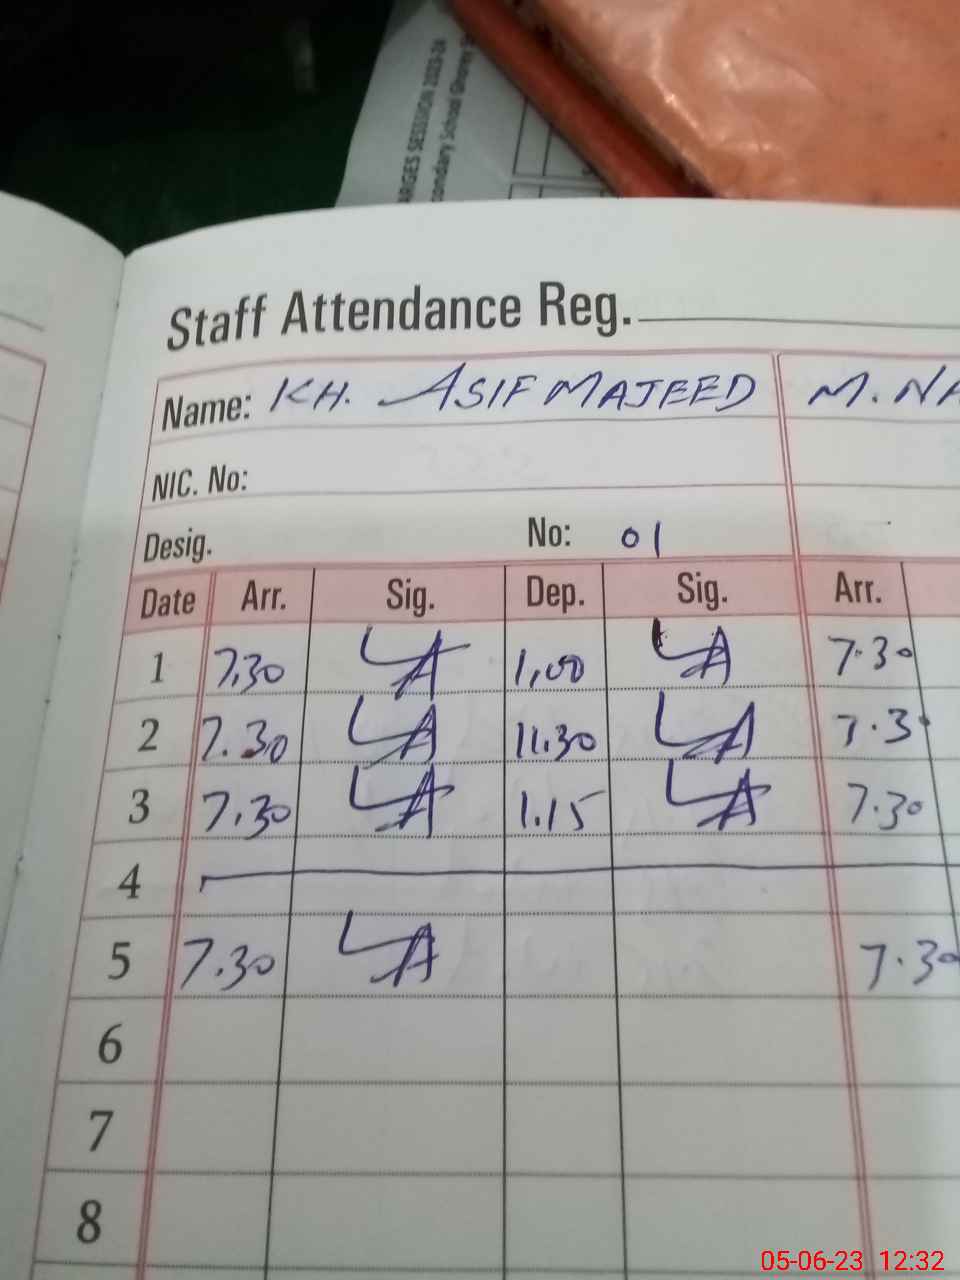 ARGES SESSION 2023-24
ondary School Ghorey S
Staff Attendance Reg.
Name: KH. ASIF MAJEED M. NA
NIC. No:
Desig. No: 01
Date Arr. Sig. Dep. Sig. Arr.
1 7.30 1.00 7.30
2 7.30 11.30 7.3
3 7.30 1.15 7.30
4
5 7.30 7.30
6
7
8
05-06-23 12:32